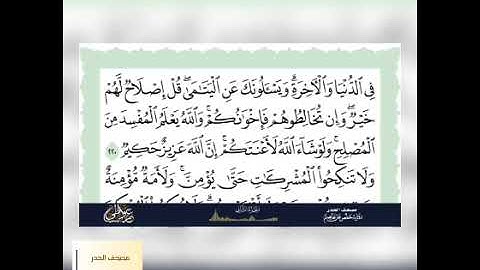 فِي ٱلدُّنۡيَا وَٱلۡأٓخِرَةِۗ وَيَسۡـَٔلُونَكَ عَنِ ٱلۡيَتَٰمَىٰۖ قُلۡ إِصۡلَاحٞ لَّهُمۡ
خَيۡرٞۖ وَإِن تُخَالِطُوهُمۡ فَإِخۡوَٰنُكُمۡۚ وَٱللَّهُ يَعۡلَمُ ٱلۡمُفۡسِدَ مِنَ
ٱلۡمُصۡلِحِۚ وَلَوۡ شَآءَ ٱللَّهُ لَأَعۡنَتَكُمۡۚ إِنَّ ٱللَّهَ عَزِيزٌ حَكِيمٞ ٢٢٠
وَلَا تَنكِحُواْ ٱلۡمُشۡرِكَٰتِ حَتَّىٰ يُؤۡمِنَّۚ وَلَأَمَةٞ مُّؤۡمِنَةٌ
مصحف الحدر
مصحف الحدر